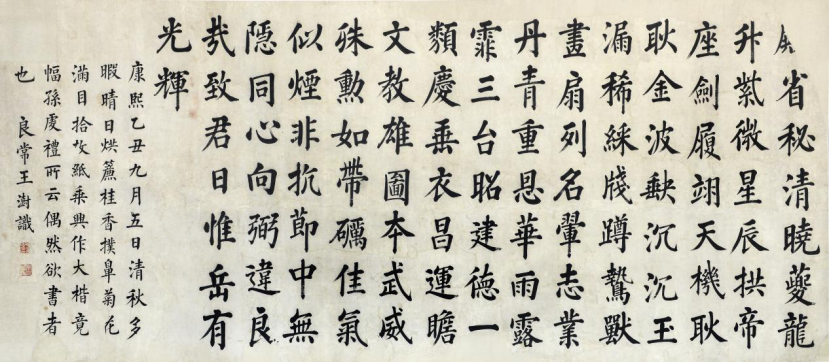 省秘清曉夔龍
升紫微星辰拱帝
座劍履翊天機耿
耿金波缺沉沉玉
漏稀綵牋蹲鷙獸
畫扇列名翬志業
丹青重恩華雨露
霏三台昭建德一
類慶垂衣昌運瞻
文教雄圖本武威
殊勳如帶礪佳氣
似煙非抗節中無
隱同心向弼違良
哉致君日惟岳有
光輝
康熙乙丑九月五日清秋多
暇晴日烘簾桂香撲鼻菊花
滿目拾故紙乘興作大楷竟
幅孫虔禮所云偶然欲書者
也 良常王澍識